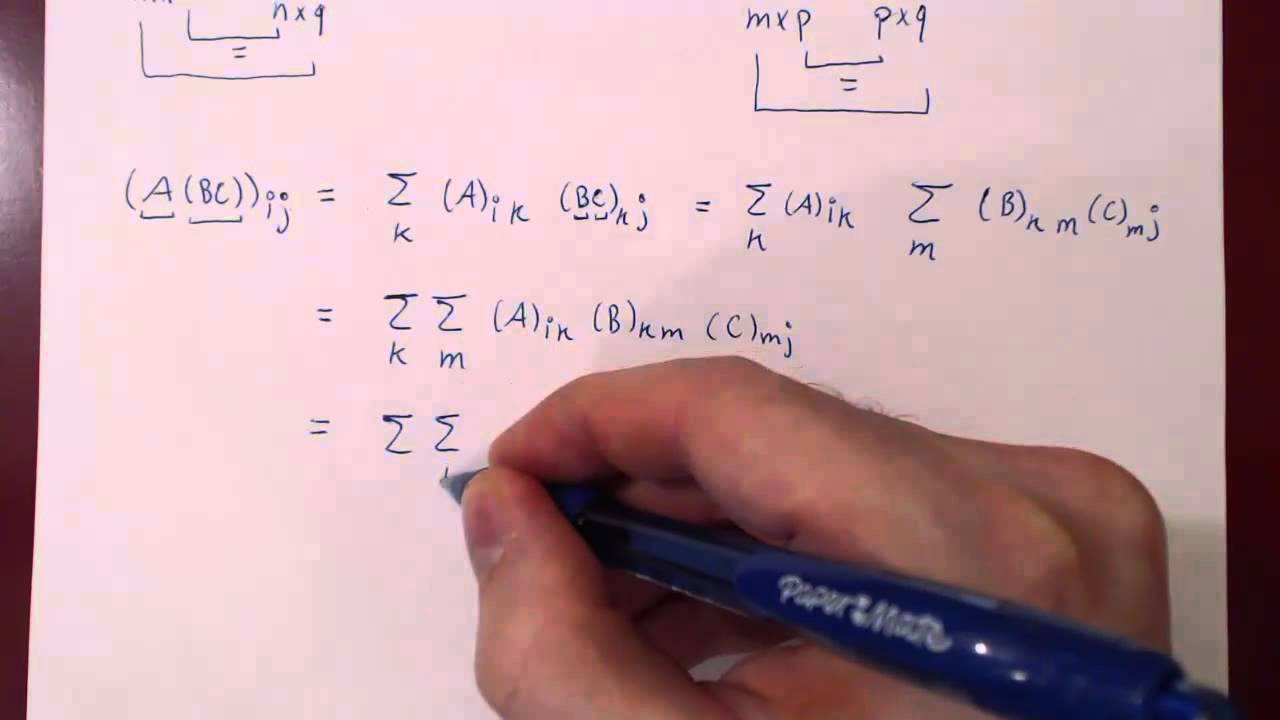 n×q m×p p×q
= =
(A(BC))ij = Σ (A)ik (BC)kj = Σ (A)ik Σ (B)km (C)mj
k k m
= Σ Σ (A)ik (B)km (C)mj
k m
= Σ Σ
PaperMate